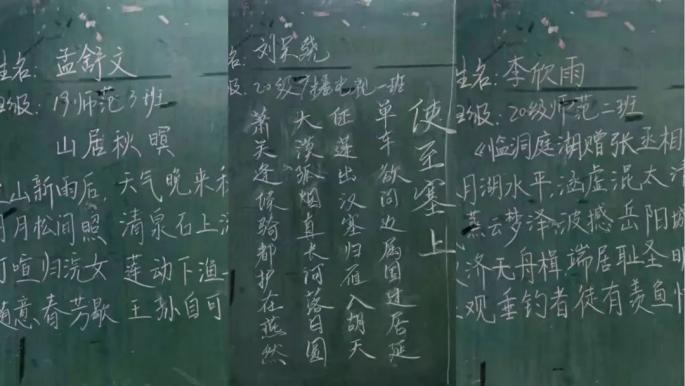 名: 孟舒文
级: 19师范3班
山居秋暝
山新雨后, 天气晚来
月松间照 清泉石上
喧归浣女 莲动下渔
意春芳歇 王孙自可
名: 刘
级: 20级广播电视一班
使至塞上
单车欲问边属国过居延
征蓬出汉塞归雁入胡天
大漠孤烟直长河落日圆
萧关逢候骑都护在燕然
姓名: 李欣雨
级: 20级师范二班
《临洞庭湖赠张丞相
月湖水平,涵虚混太
蒸云梦泽,波撼岳阳城
济无舟楫 端居耻圣明
观垂钓者徒有羡鱼